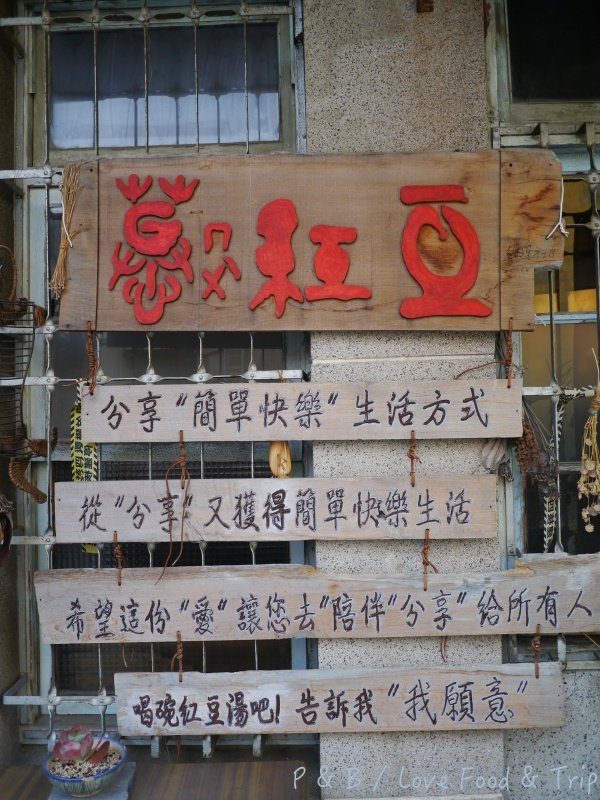 慕紅豆
分享"簡單快樂"生活方式
從"分享"又獲得簡單快樂生活
希望這份"愛"讓您去"陪伴"分享"給所有人
喝碗紅豆湯吧! 告訴我"我願意"
P & B / Love Food & Trip